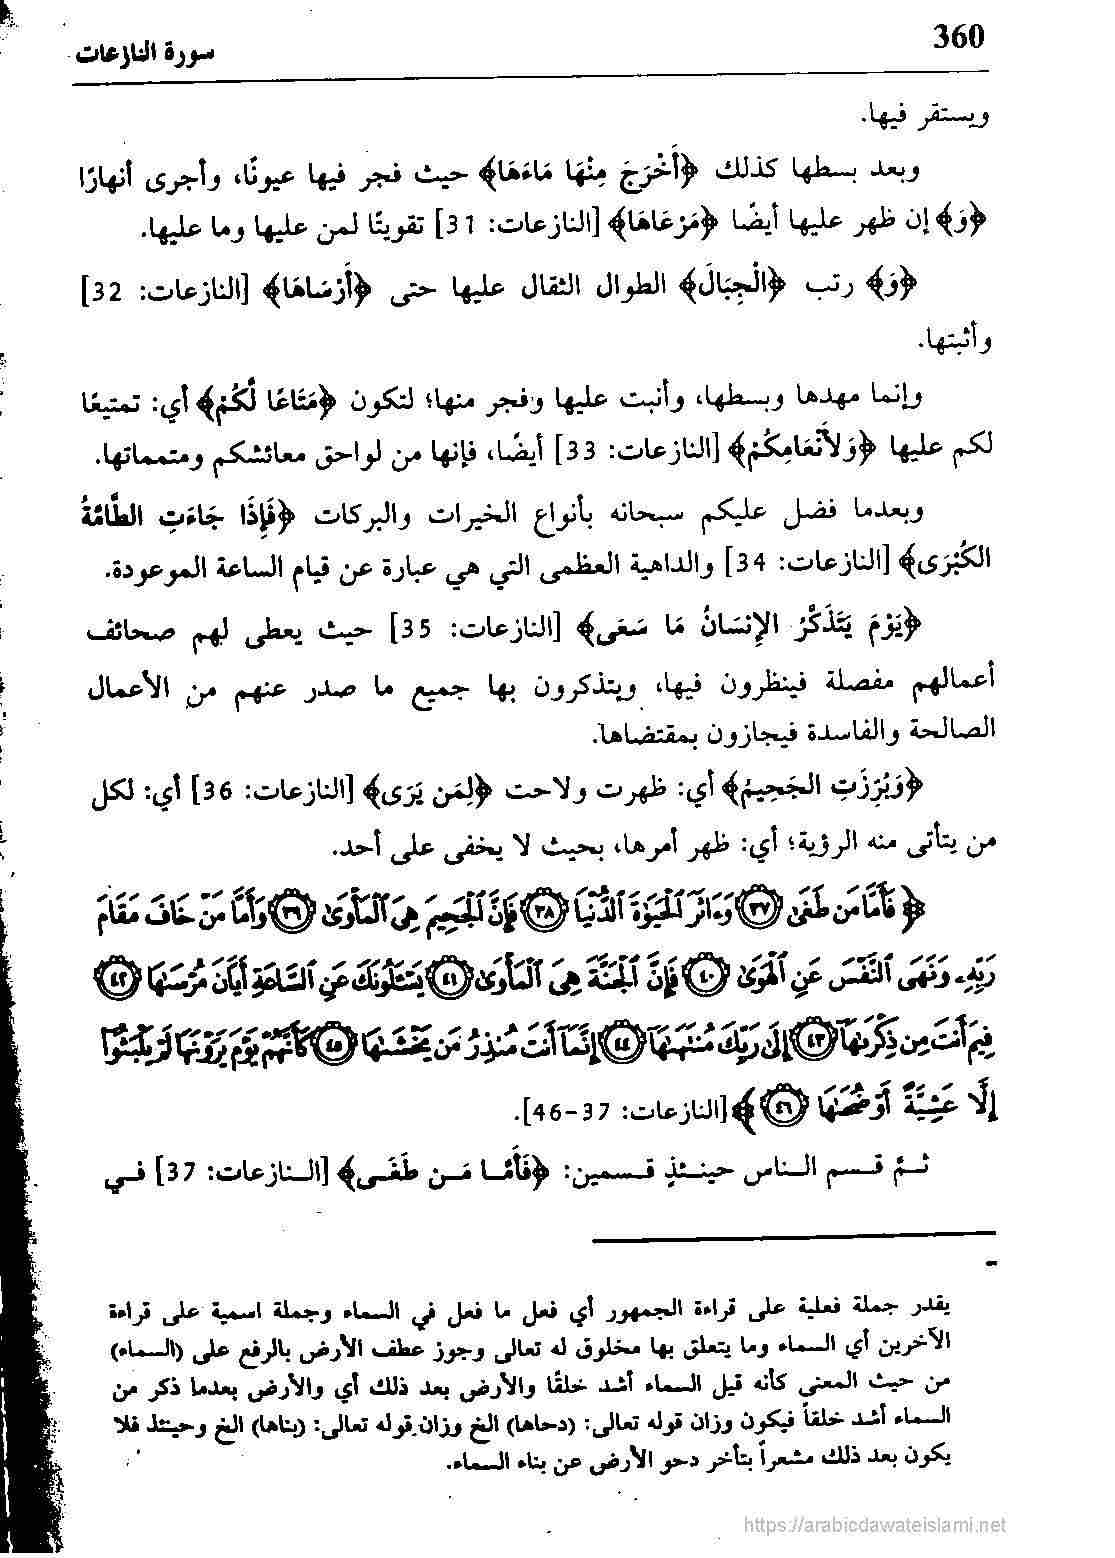 360
سورة النازعات
ويستقر فيها.
وبعد بسطها كذلك ﴿أَخْرَجَ مِنْهَا مَاءَهَا﴾ حيث فجر فيها عيونًا، وأجرى أنهارًا
﴿وَ﴾ إن ظهر عليها أيضًا ﴿مَرْعَاهَا﴾ [النازعات: 31] تقويتًا لمن عليها وما عليها.
﴿وَ﴾ رتب ﴿الْجِبَالَ﴾ الطوال الثقال عليها حتى ﴿أَرْسَاهَا﴾ [النازعات: 32]
وأثبتها.
وإنما مهدها وبسطها، وأنبت عليها وفجر منها؛ لتكون ﴿مَتَاعًا لَّكُمْ﴾ أي: تمتيعًا
لكم عليها ﴿وَلأَنْعَامِكُمْ﴾ [النازعات: 33] أيضًا، فإنها من لواحق معائشكم ومتمماتها.
وبعدما فضل عليكم سبحانه بأنواع الخيرات والبركات ﴿فَإِذَا جَاءَتِ الطَّامَّةُ
الكُبْرَى﴾ [النازعات: 34] والداهية العظمى التي هي عبارة عن قيام الساعة الموعودة.
﴿يَوْمَ يَتَذَكَّرُ الإِنسَانُ مَا سَعَى﴾ [النازعات: 35] حيث يعطى لهم صحائف
أعمالهم مفصلة فينظرون فيها، ويتذكرون بها جميع ما صدر عنهم من الأعمال
الصالحة والفاسدة فيجازون بمقتضاها.
﴿وَبُرِّزَتِ الجَحِيمُ﴾ أي: ظهرت ولاحت ﴿لِمَن يَرَى﴾ [النازعات: 36] أي: لكل
من يتأتى منه الرؤية؛ أي: ظهر أمرها، بحيث لا يخفى على أحد.
﴿ فَأَمَّا مَن طَغَىٰ ٣٧ وَءَاثَرَ ٱلْحَيَوٰةَ ٱلدُّنْيَا ٣٨ فَإِنَّ ٱلْجَحِيمَ هِىَ ٱلْمَأْوَىٰ ٣٩ وَأَمَّا مَنْ خَافَ مَقَامَ
رَبِّهِۦ وَنَهَى ٱلنَّفْسَ عَنِ ٱلْهَوَىٰ ٤٠ فَإِنَّ ٱلْجَنَّةَ هِىَ ٱلْمَأْوَىٰ ٤١ يَسْـَٔلُونَكَ عَنِ ٱلسَّاعَةِ أَيَّانَ مُرْسَىٰهَا ٤٢
فِيمَ أَنتَ مِن ذِكْرَىٰهَآ ٤٣ إِلَىٰ رَبِّكَ مُنتَهَىٰهَآ ٤٤ إِنَّمَآ أَنتَ مُنذِرُ مَن يَخْشَىٰهَا ٤٥ كَأَنَّهُمْ يَوْمَ يَرَوْنَهَا لَمْ يَلْبَثُوٓا۟
إِلَّا عَشِيَّةً أَوْ ضُحَىٰهَا ٤٦ ﴾ [النازعات: 37-46].
ثمَّ قسم الناس حينئذٍ قسمين: ﴿فَأَمَّا مَن طَغَى﴾ [النازعات: 37] في
يقدر جملة فعلية على قراءة الجمهور أي فعل ما فعل في السماء وجملة اسمية على قراءة
الآخرين أي السماء وما يتعلق بها مخلوق له تعالى وجوز عطف الأرض بالرفع على (السماء)
من حيث المعنى كأنه قيل السماء أشد خلقًا والأرض بعد ذلك أي والأرض بعدما ذكر من
السماء أشد خلقاً فيكون وزان قوله تعالى: (دحاها) الخ وزان قوله تعالى: (بناها) الخ وحينئذ فلا
يكون بعد ذلك مشعراً بتأخر دحو الأرض عن بناء السماء.
https://arabicdawateislami.net